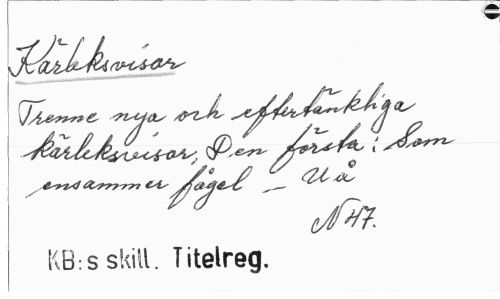 Kärleksvisor
Trenne nya och eftertänkliga
kärleksvisor, Den första: Som
ensammer fågel – U å
N 47.
KB:s skill. Titelreg.